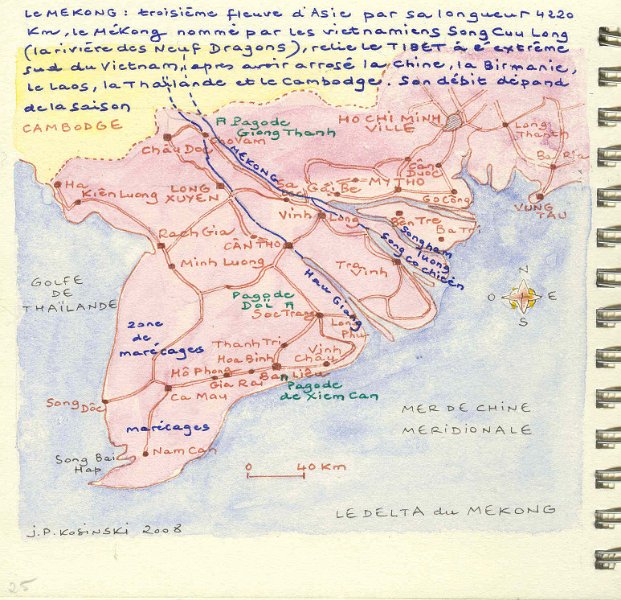 Le MEKONG : troisième fleuve d'Asie par sa longueur 4220
Km, le MéKong nommé par les vietnamiens Song Cuu Long
(la rivière des Neuf Dragons), relie le TIBET à l'extrême
sud du Vietnam, apres avoir arrosé la Chine, la Birmanie,
le Laos, la Thaïlande et le Cambodge. Son débit dépend
de la saison
CAMBODGE
A Pagode
Giong Thanh
HO CHI MINH
VILLE
Long
Thanh
Châu Doc
Caovam
MEKONG
Can
Duoc
Ba Ria
Ha
Kiên Luong
LONG
XUYÊN
Sa
Dec
Gai Be
MY THO
Go Công
VUNG
TAU
Vinh Long
Bên Tre
Ba Tri
Rach Gia
CÂN THO
Song ham
luong
Song Co chiên
Minh Luong
Tra
Vinh
GOLFE
DE
THAÏLANDE
Hau Giang
N
O
E
S
Pagode
Dôi A
Soc Trang
Long
Phu
zone
de
marécages
Thanh Tri
Hoa Binh
Vinh
Châu
Hô Phong
Gia Rai
Bac Liêu
Pagode
de Xiem Can
Song
Dôc
Ca Mau
MER DE CHINE
MERIDIONALE
marécages
Song Bai
Hap
Nam Can
0 40 Km
LE DELTA du MEKONG
J.P. KOSINSKI 2008
25